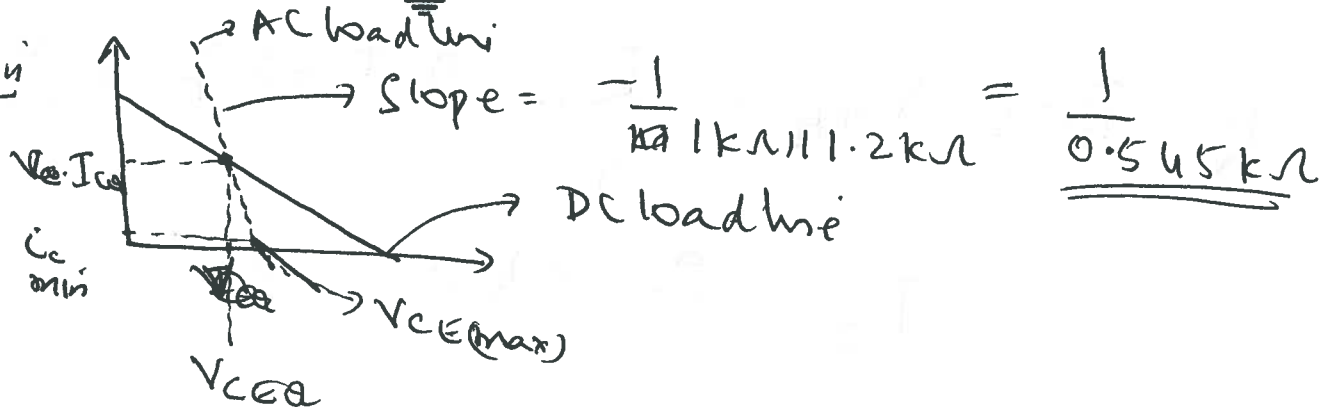 AC load line
Slope = -1 / 1kΩ||1.2kΩ = 1 / 0.545kΩ
ICQ
DC load line
ic
min
VCE(max)
VCEQ